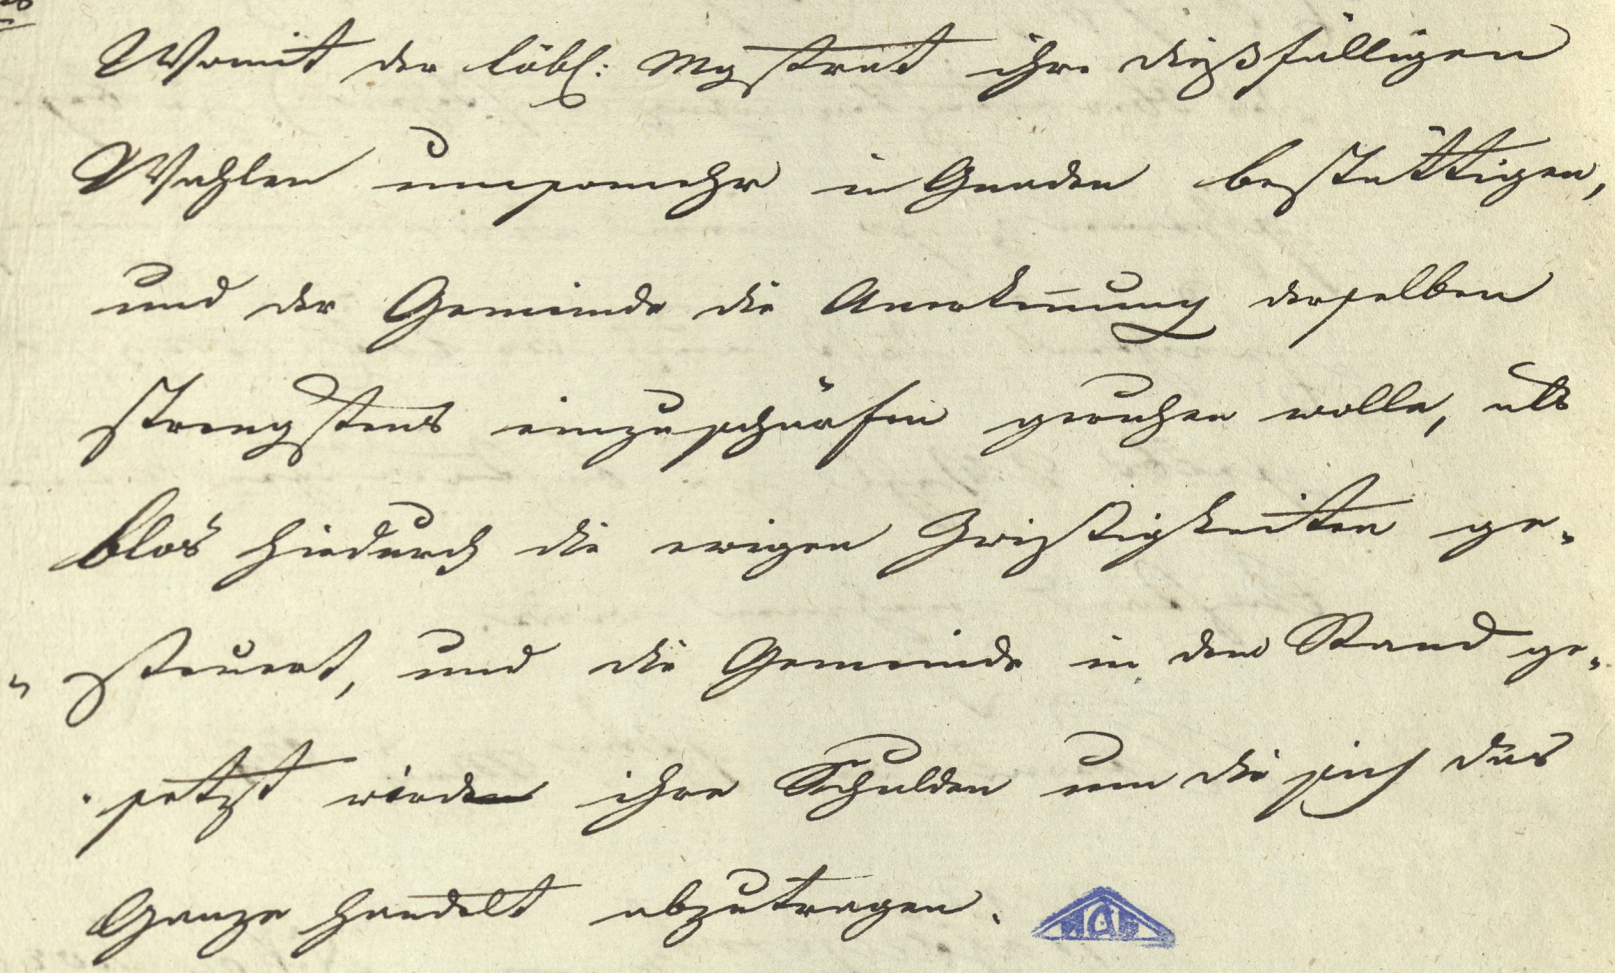 Womit der löbl: Mgstrat ihre dießfälligen
Wahlen umsomehr in Gnaden bestättigen,
und der Gemeinde die Anerkennung derselben
strengstens einzuschärfen geruhen wolle, als
blos hiedurch die ewigen Zwistigkeiten ge-
steuert, und die Gemeinde in den Stand ge-
setzt wird ihre Schulden um die sich das
Ganze handelt abzutragen.